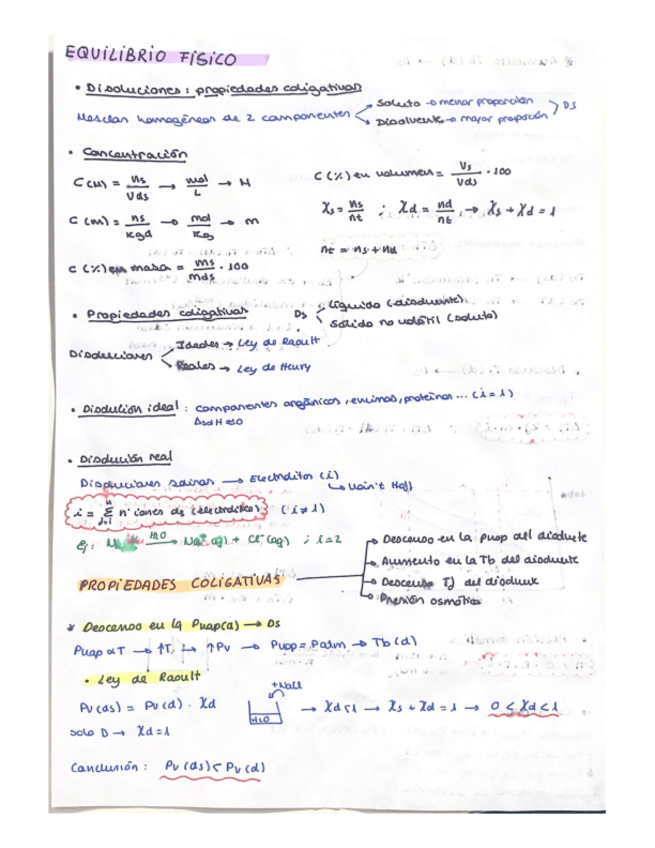 EQUILIBRIO FÍSICO
• Disoluciones: propiedades coligativas
Mezclas homogéneas de 2 componentes < Soluto → menor proporción > Ds
Disolvente → mayor proporción
• Concentración
C (M) = ns / Vds → mol / L → M
C (%) en volumen = Vs / Vds · 100
C (m) = ns / Kgd → mol / Kg → m
χs = ns / nt ; χd = nd / nt → χs + χd = 1
nt = ns + nd
C (%) en masa = ms / mds · 100
• Propiedades coligativas
Ds < Líquido (disolvente)
Sólido no volátil (soluto)
Disoluciones < Ideales → Ley de Raoult
Reales → Ley de Henry
• Disolución ideal : componentes orgánicos, encimas, proteínas ... (i = 1)
• Disolución real
Disoluciones salinas → Electrolitos (i)
↳ Vain't Hoff
i = Σ nº iones de (electrolitos) (i ≠ 1)
H2O → Na+ (aq) + Cl- (aq) ; i = 2
PROPIEDADES COLIGATIVAS
→ Descenso en la Pvap del disolvte
→ Aumento en la Tb del disolvente
→ Descenso Tf del disolvente
→ Presión osmótica
* Descenso en la Pvap(d) → Ds
Pvap α T → ↑T → ↑Pv → Pvap = Patm → Tb (d)
• Ley de Raoult
Pv (ds) = Pv (d) · χd
+NaCl
H2O
→ χd < 1 → χs + χd = 1 → 0 < χd < 1
solo D → χd = 1
Conclusión : Pv (ds) < Pv (d)